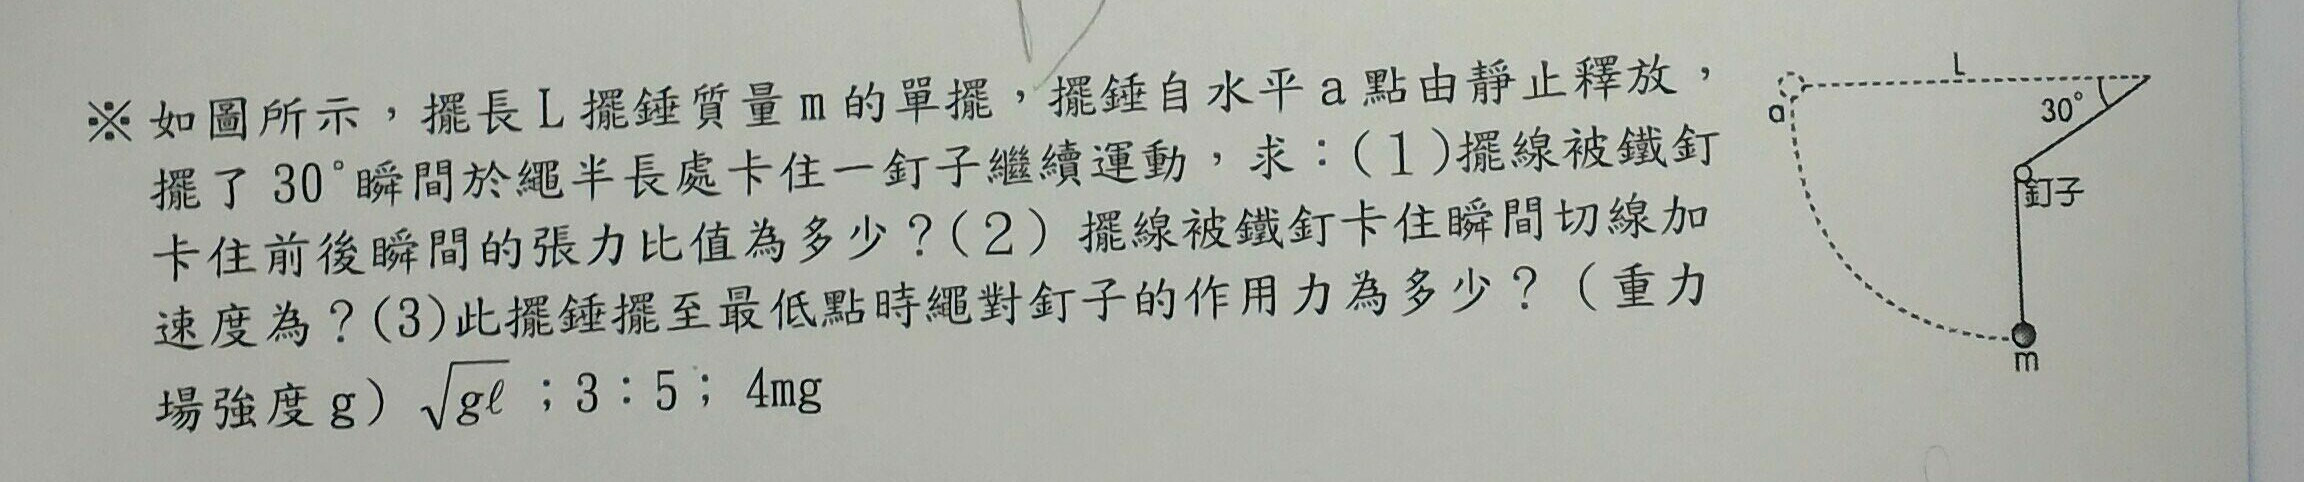 ※如圖所示，擺長L擺錘質量m的單擺，擺錘自水平a點由靜止釋放，
擺了30°瞬間於繩半長處卡住一釘子繼續運動，求：(1)擺線被鐵釘
卡住前後瞬間的張力比值為多少？(2) 擺線被鐵釘卡住瞬間切線加
速度為？(3)此擺錘擺至最低點時繩對釘子的作用力為多少？（重力
場強度g）√gℓ；3：5；4mg
L
a
30°
釘子
m